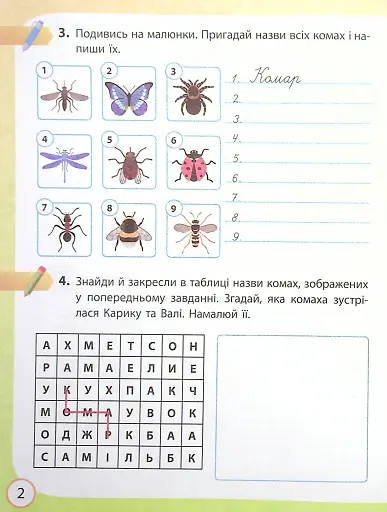 3. Подивись на малюнки. Пригадай назви всіх комах і на-
пиши їх.
1
2
3
4
5
6
7
8
9
1. Комар
2.
3.
4.
5.
6.
7.
8.
9.
4. Знайди й закресли в таблиці назви комах, зображених
у попередньому завданні. Згадай, яка комаха зустрі-
лася Карику та Валі. Намалюй її.
А Х М Е Т С О Н
Р А М А Е Л И Е
У К У Х П А К Ч
М О М А У В О К
О Д Ж Р К Б А А
С А М І Л Ь Б К
2